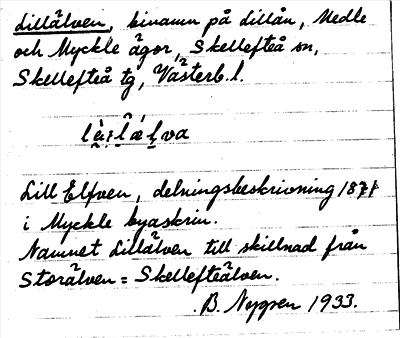 Lillälven, binamn på Lillån, Medle
och Myckle ägor, Skellefteå sn,
Skellefteå tg, Västerb. l.
Lill Elfven, delningsbeskrivning 1871
i Myckle byaskrin.
Namnet Lillälven till skillnad från
Storälven = Skellefteälven.
B. Nygren 1933.